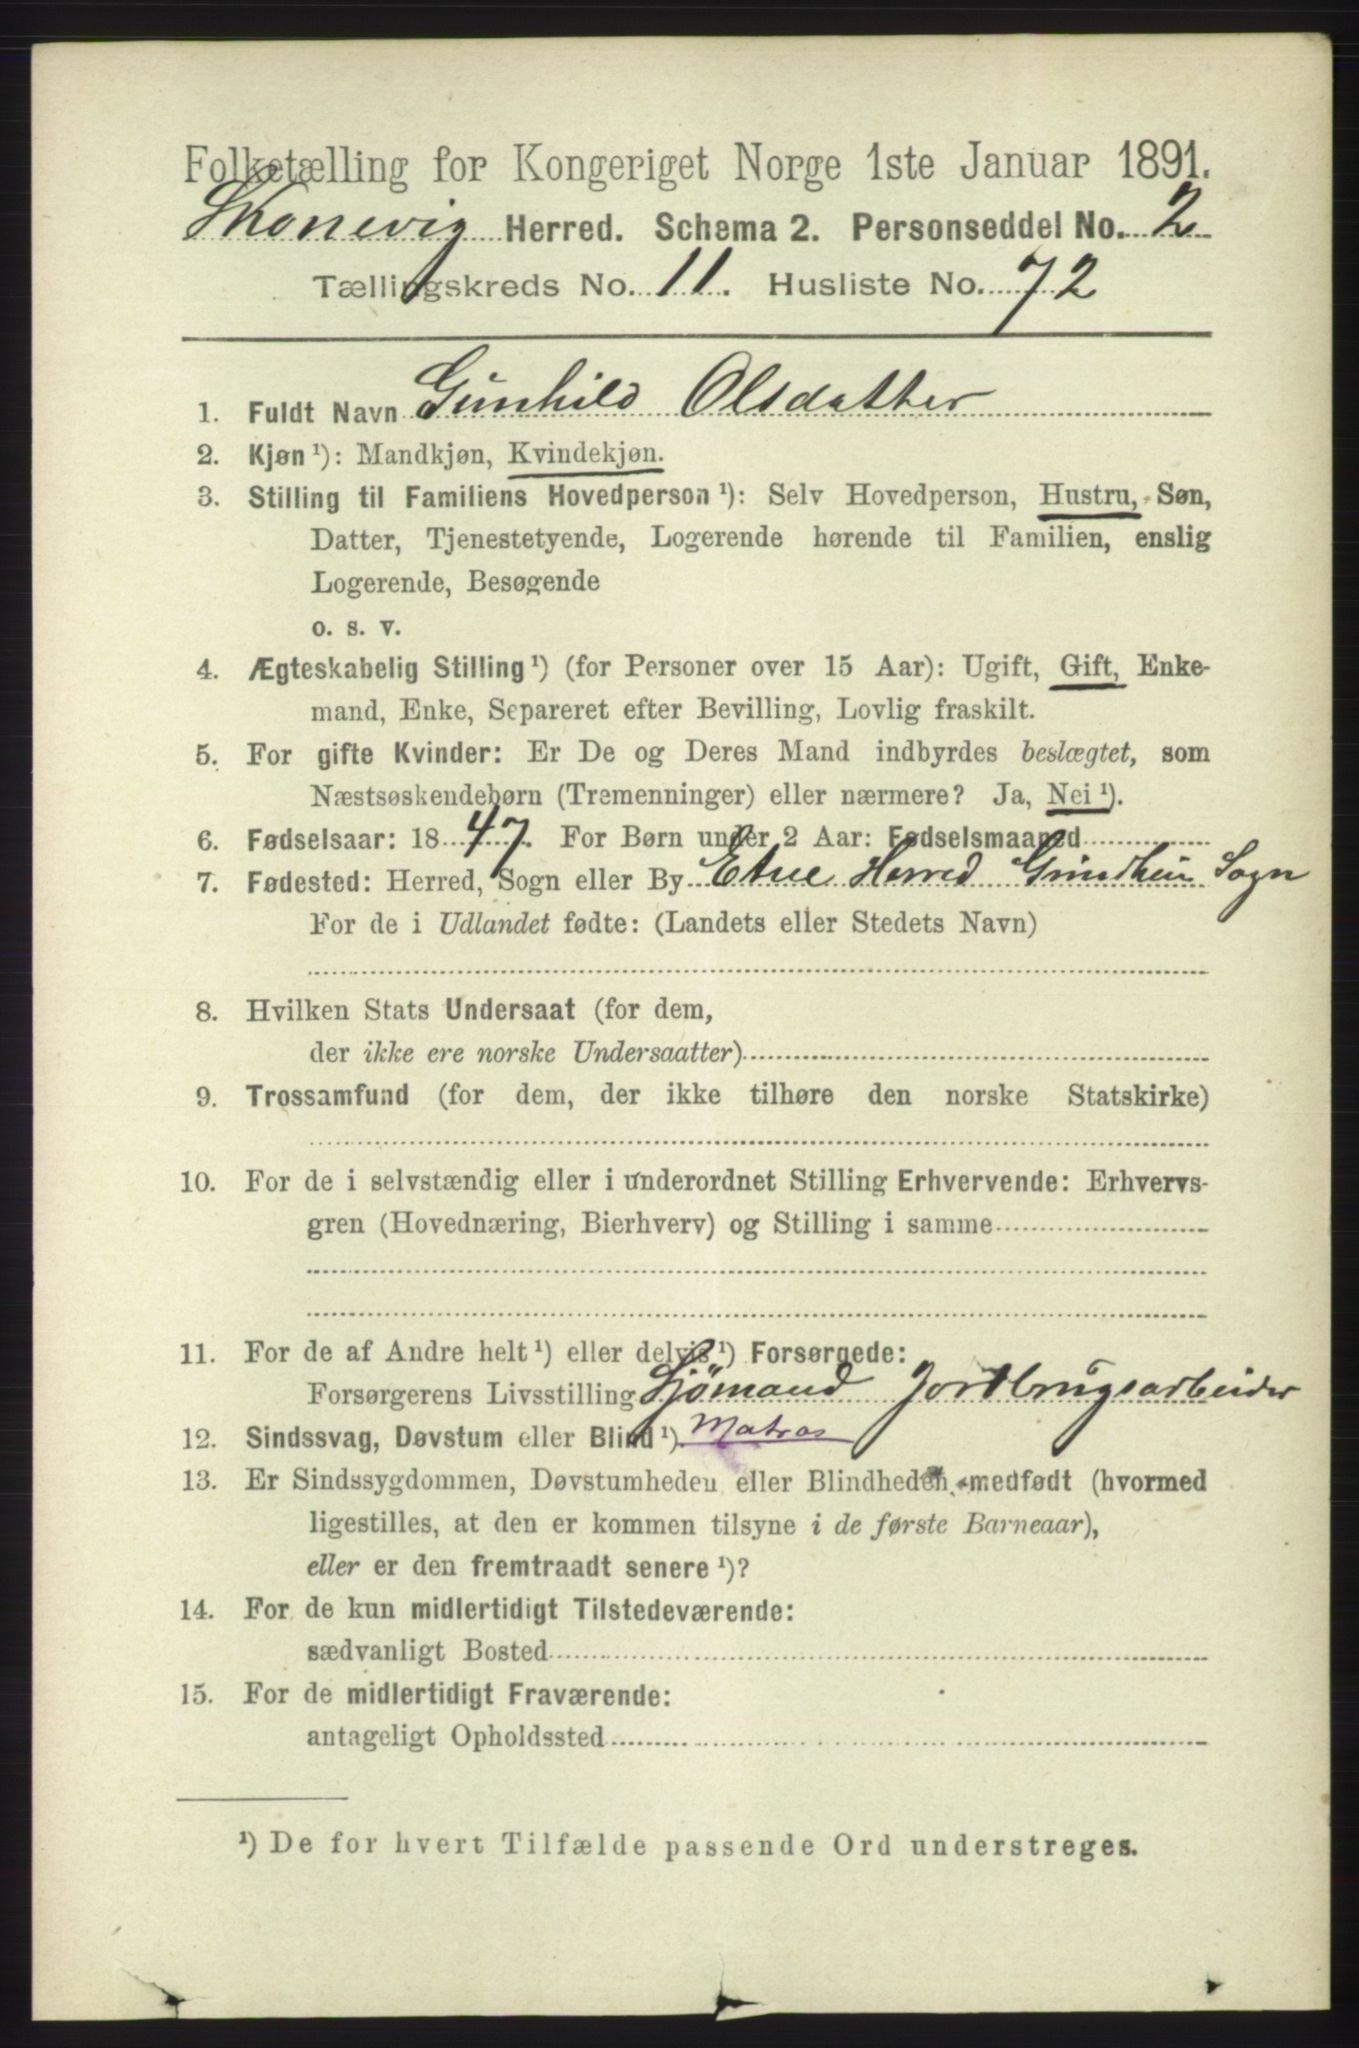 Folketælling for Kongeriget Norge 1ste Januar 1891.
Skonevig Herred. Schema 2. Personseddel No. 2
Tællingskreds No. 11. Husliste No. 72
1. Fuldt Navn Gunhild Olsdatter
2. Kjøn ¹): Mandkjøn, Kvindekjøn.
3. Stilling til Familiens Hovedperson ¹): Selv Hovedperson, Hustru, Søn,
Datter, Tjenestetyende, Logerende hørende til Familien, enslig
Logerende, Besøgende
o. s. v.
4. Ægteskabelig Stilling ¹) (for Personer over 15 Aar): Ugift, Gift, Enke-
mand, Enke, Separeret efter Bevilling, Lovlig fraskilt.
5. For gifte Kvinder: Er De og Deres Mand indbyrdes beslægtet, som
Næstsøskendebørn (Tremenninger) eller nærmere? Ja, Nei ¹).
6. Fødselsaar: 1847. For Børn under 2 Aar: Fødselsmaaned
7. Fødested: Herred, Sogn eller By Etne Herred Grindhein Sogn
For de i Udlandet fødte: (Landets eller Stedets Navn)
8. Hvilken Stats Undersaat (for dem,
der ikke ere norske Undersaatter)
9. Trossamfund (for dem, der ikke tilhøre den norske Statskirke)
10. For de i selvstændig eller i underordnet Stilling Erhvervende: Erhvervs-
gren (Hovednæring, Bierhverv) og Stilling i samme
11. For de af Andre helt ¹) eller delvis ¹) Forsørgede:
Forsørgerens Livsstilling Sjömand Jordbrugsarbeider
12. Sindssvag, Døvstum eller Blind ¹). Matros
13. Er Sindssygdommen, Døvstumheden eller Blindheden medfødt (hvormed
ligestilles, at den er kommen tilsyne i de første Barneaar),
eller er den fremtraadt senere ¹)?
14. For de kun midlertidigt Tilstedeværende:
sædvanligt Bosted
15. For de midlertidigt Fraværende:
antageligt Opholdssted
¹) De for hvert Tilfælde passende Ord understreges.